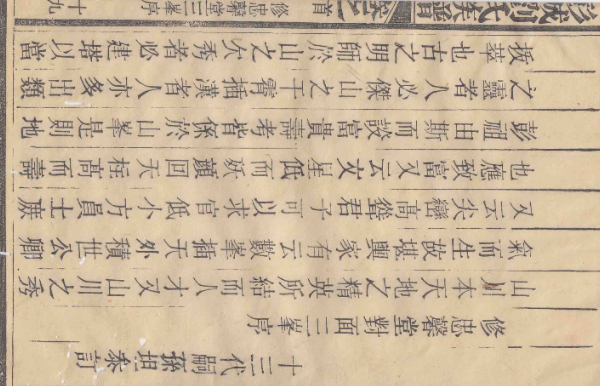 十三代嗣孫坦叅訂
修忠馨堂對面三峯序
山川本天地之精英所結而人才又山川之秀
氣而生故堪輿家有云數峯插天外積世公卿
又云尖巒高聳君子可以求官低小方員土厫
也應致富又云文星低而夭顏回天柱高而壽
彭祖由斯而談富貴壽考皆係於山峯是則地
之靈者人必傑山之干霄插漢者人亦多出類
拔萃也古之明師於山之欠秀者必建塔以當
彭城劉氏族譜 卷之首 修忠馨堂三峯序 十九